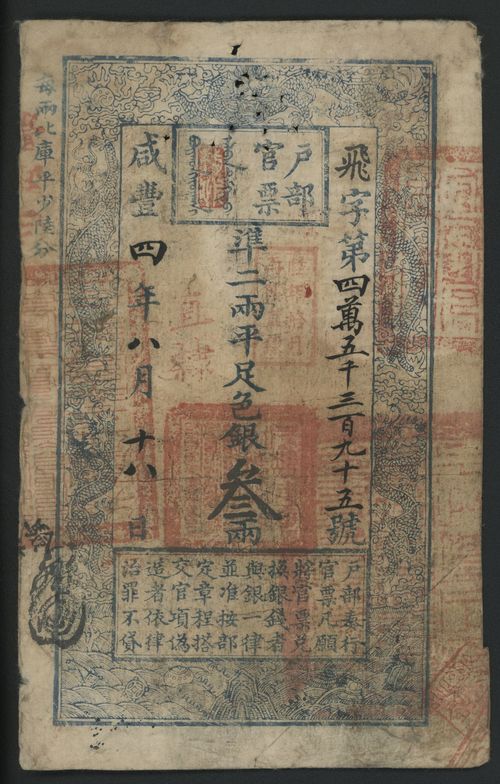 戶部
官票
飛字第四萬五千三百九十五號
準二兩平足色銀叁兩
咸豐四年八月十八日
戶部奏行
官票凡願
將官票兌
換銀錢者
與銀一律
並准按部
定章程搭
交官項偽
造者依律
治罪不貸
每兩比庫平少陸分
直隸